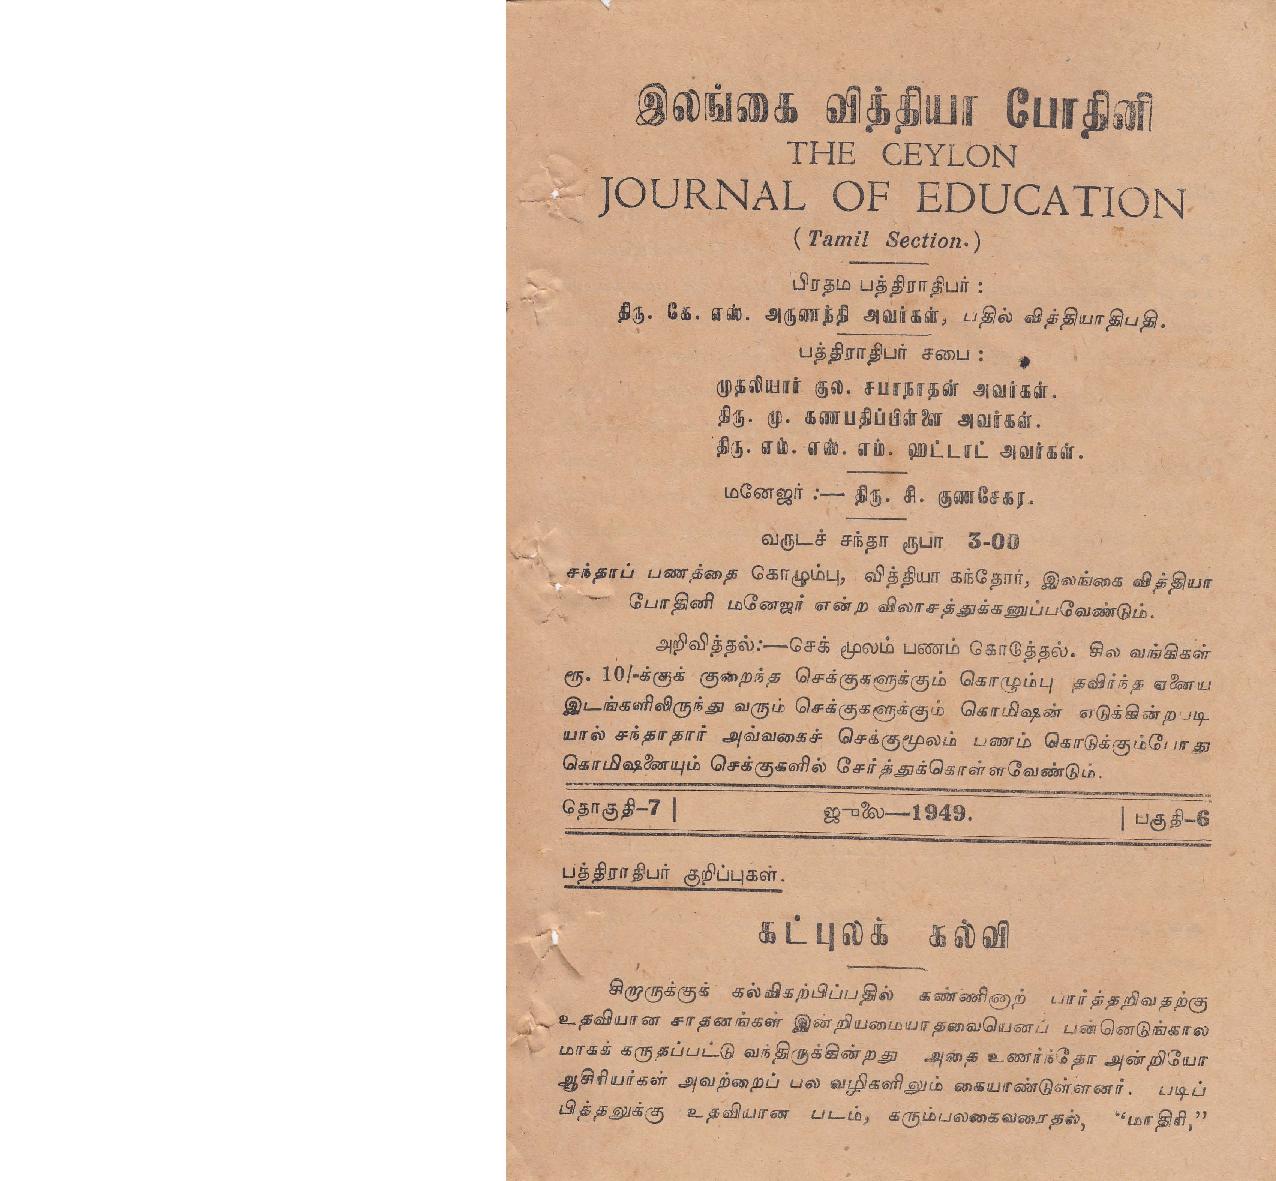 இலங்கை வித்தியா போதினி
THE CEYLON
JOURNAL OF EDUCATION
(Tamil Section.)
பிரதம பத்திராதிபர் :
திரு. கே. எஸ். அருணந்தி அவர்கள், பதில் வித்தியாதிபதி.
பத்திராதிபர் சபை :
முதலியார் குல. சபாநாதன் அவர்கள்.
திரு. மு. கணபதிப்பிள்ளை அவர்கள்.
திரு. எம். எஸ். எம். ஹட்டாட் அவர்கள்.
மனேஜர் :— திரு. சி. குணசேகர.
வருடச் சந்தா ரூபா 3-00
சந்தாப் பணத்தை கொழும்பு, வித்தியா கந்தோர், இலங்கை வித்தியா
போதினி மனேஜர் என்ற விலாசத்துக்கனுப்பவேண்டும்.
அறிவித்தல்:—செக் மூலம் பணம் கொடுத்தல். சில வங்கிகள்
ரூ. 10/-க்குக் குறைந்த செக்குகளுக்கும் கொழும்பு தவிர்ந்த ஏனைய
இடங்களிலிருந்து வரும் செக்குகளுக்கும் கொமிஷன் எடுக்கின்றபடி
யால் சந்தாதார் அவ்வகைச் செக்குமூலம் பணம் கொடுக்கும்போது
கொமிஷனையும் செக்குகளில் சேர்த்துக்கொள்ளவேண்டும்.
தொகுதி–7 | ஜுலை—1949. | பகுதி–6
பத்திராதிபர் குறிப்புகள்.
கட்புலக் கல்வி
சிறுருக்குக் கல்விகற்பிப்பதில் கண்ணினாற் பார்த்தறிவதற்கு
உதவியான சாதனங்கள் இன்றியமையாதவையெனப் பன்னெடுங்கால
மாகக் கருதப்பட்டு வந்திருக்கின்றது அதை உணர்ந்தோ அன்றியோ
ஆசிரியர்கள் அவற்றைப் பல வழிகளிலும் கையாண்டுள்ளனர். படிப்
பித்தலுக்கு உதவியான படம், கரும்பலகைவரைதல், “மாதிரி,”